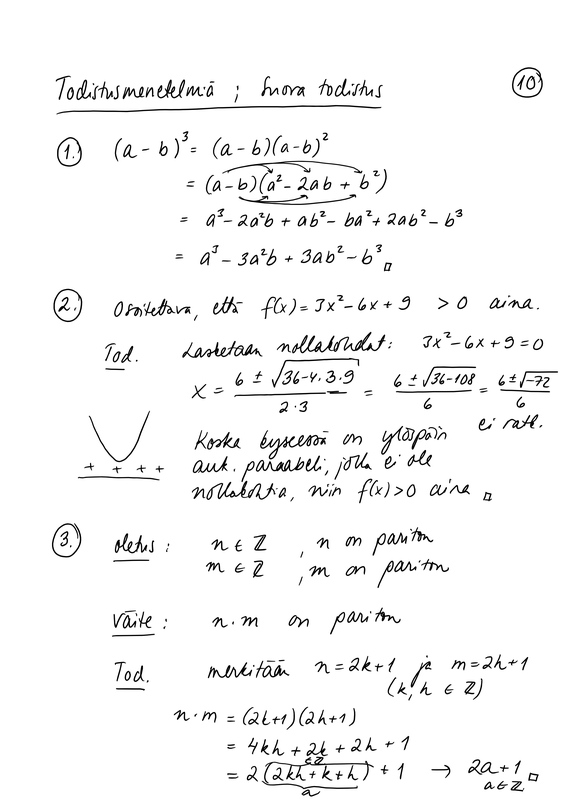 Todistusmenetelmiä ; Suora todistus
10
1. (a - b)³ = (a - b)(a - b)²
= (a - b)(a² - 2ab + b²)
= a³ - 2a²b + ab² - ba² + 2ab² - b³
= a³ - 3a²b + 3ab² - b³ □
2. Osoitettava, että f(x) = 3x² - 6x + 9 > 0 aina.
Tod. Lasketaan nollakohdat: 3x² - 6x + 9 = 0
x = (6 ± √(36 - 4·3·9))/(2·3) = (6 ± √(36 - 108))/6 = (6 ± √(-72))/6
ei ratk.
Koska kyseessä on ylöspäin
+ + + +
auk. paraabeli, jolla ei ole
nollakohtia, niin f(x) > 0 aina □
3. oletus : n ∈ ℤ , n on pariton
m ∈ ℤ , m on pariton
väite : n·m on pariton
Tod. merkitään n = 2k+1 ja m = 2h+1
(k, h ∈ ℤ)
n·m = (2k+1)(2h+1)
= 4kh + 2k + 2h + 1
∈ℤ
= 2(2kh + k + h) + 1 → 2a+1 □
a
a∈ℤ